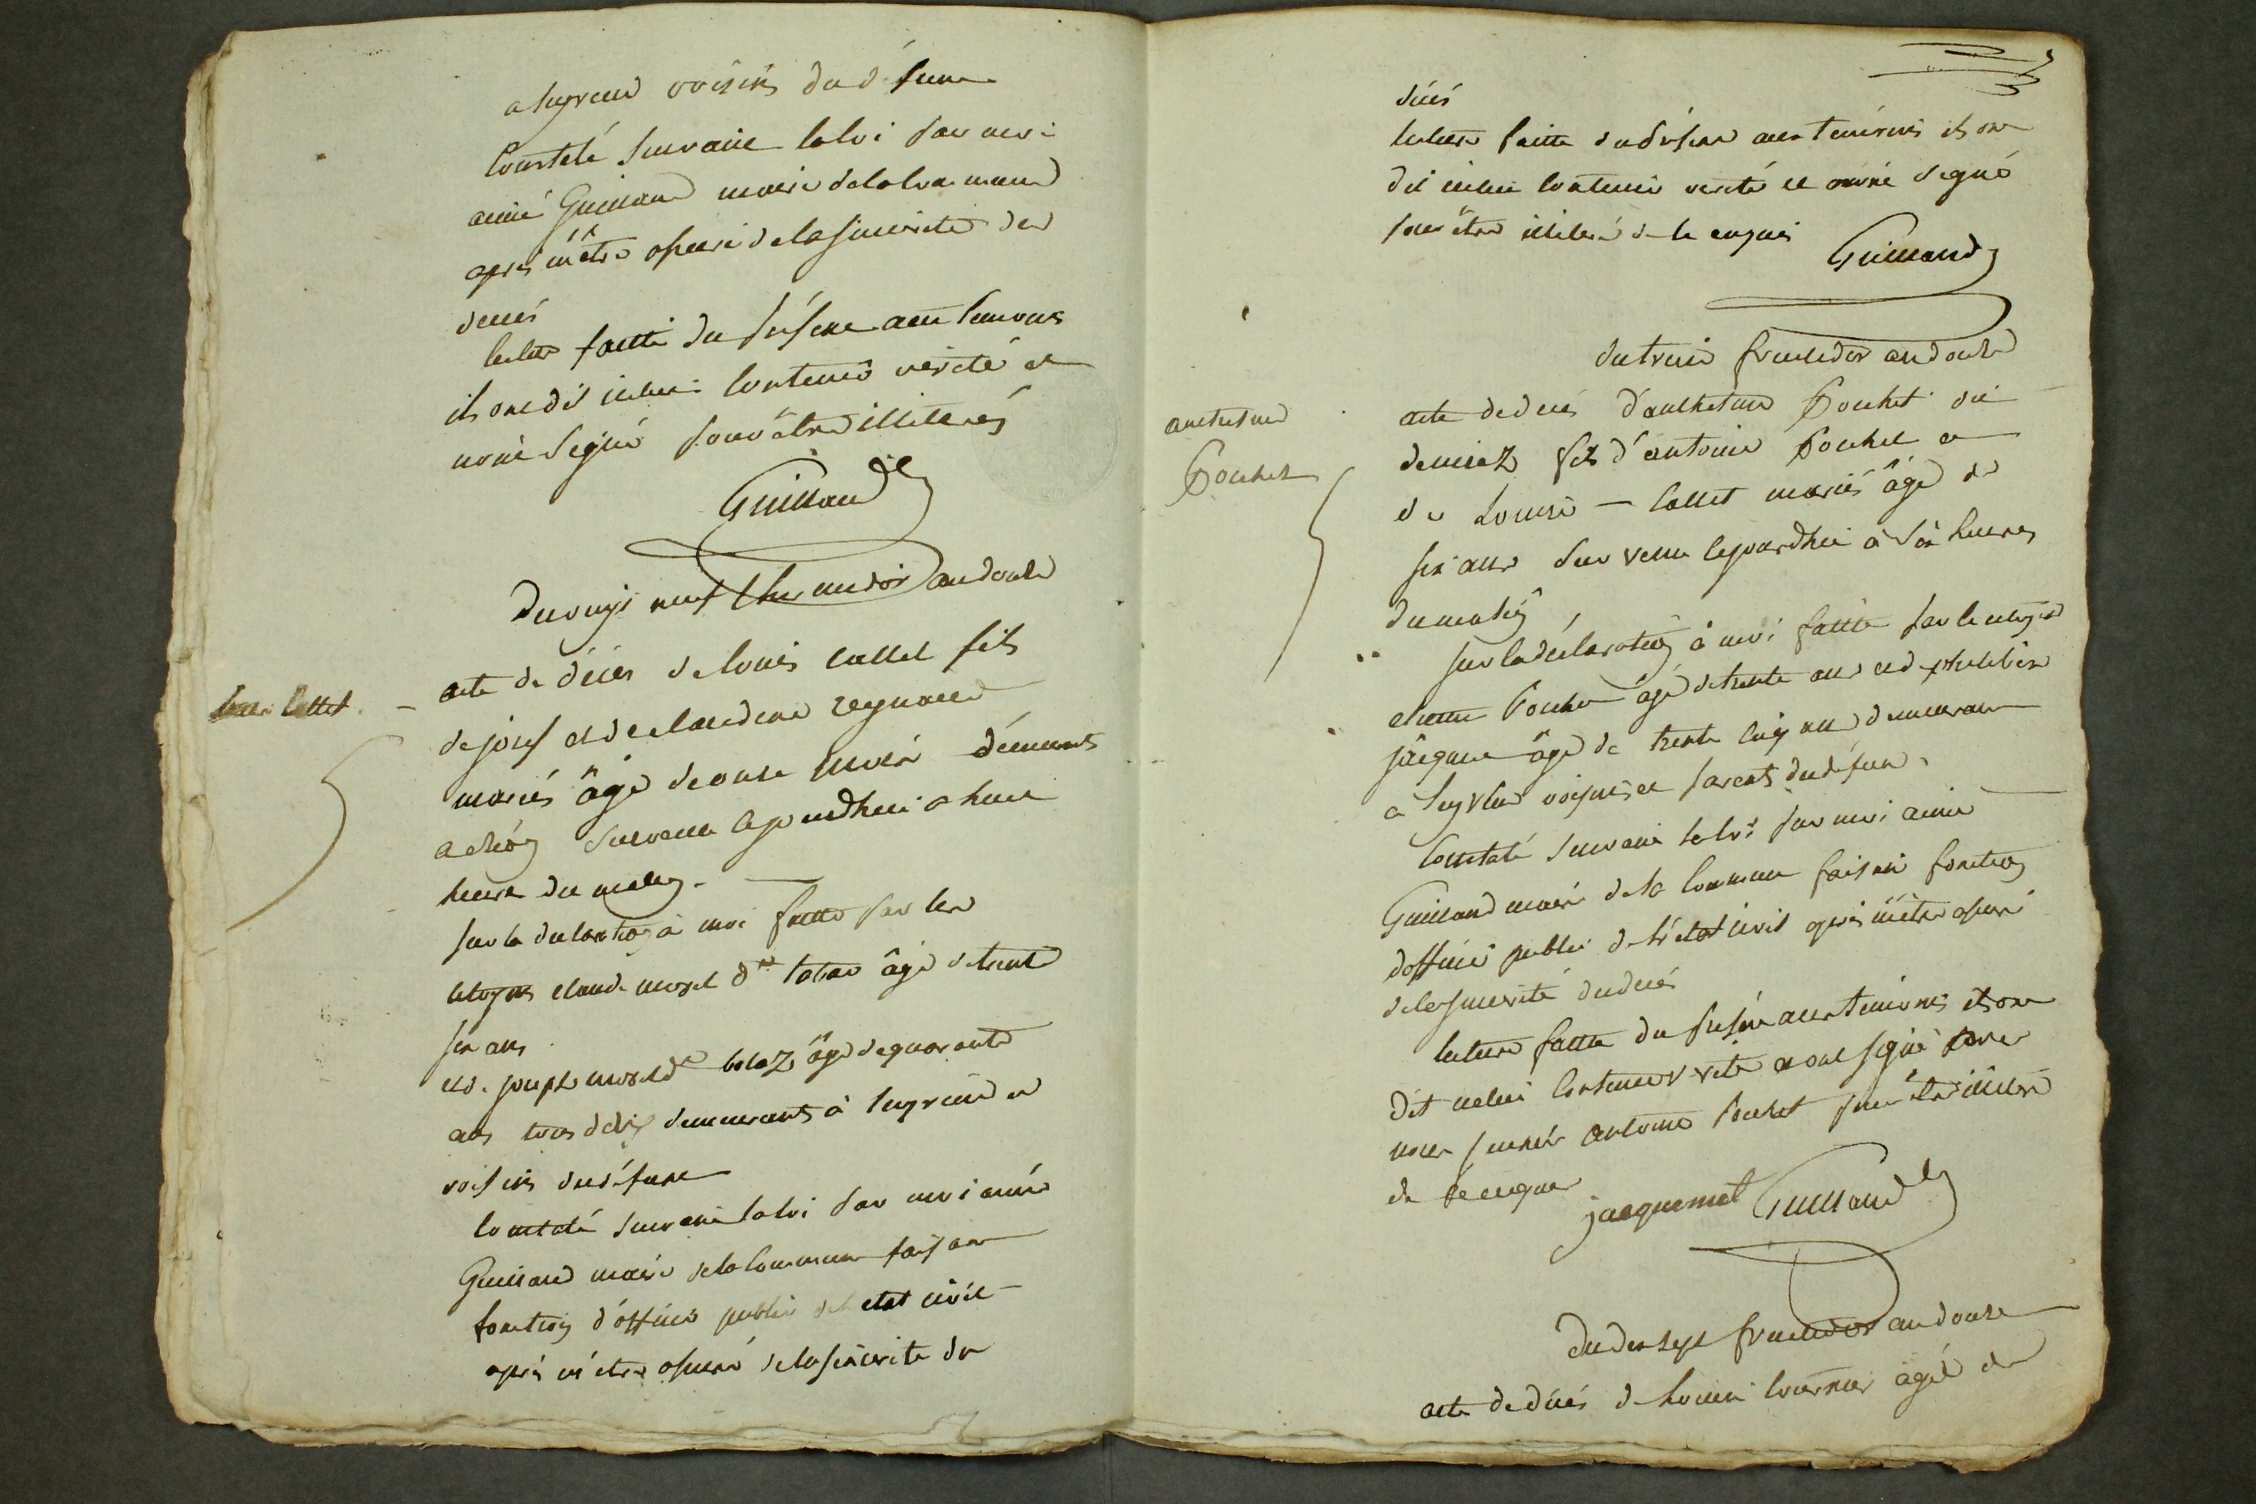 a voisins du défunt
Constaté suivant la loi par moi
aimé Guilland maire de la
après m'être assuré de la sincérité du
décès
lecture faitte du présent aux témoins
ils ont dit icelui contenir vérité et
n'ont signé pour être illitérés
Guilland
Du vingt neuf thermidor an douze
Louis Collet
acte de décès de Louis Collet fils
de josef et de claudine reynaud
mariés âgé de onze mois
survenu aujourdhui a huit
heures du matin
sur la déclaration à moi faitte par les
citoyens claude morel âgé de trente
six ans
et de joseph morel âgé de quarante
ans tous deux demeurants à
voisins du défunt
Constaté suivant la loi par moi aimé
Guilland maire de la Commune faisant
fonction d'officier public de l'etat civil
après m'être assuré de la sincérité du
décès
lecture faitte du présent aux témoins ils ont
dit icelui contenir vérité et n'ont signé
pour être illitéré de ce enquis
Guilland
du treize fructidor an douze
anthelme
Pochet
acte de décès d'anthelme Pochet
fils d'antoine Pochet et
de Louise Collet mariés âgé de
six ans survenu aujourdhui à six heures
du matin
sur la déclaration à moi faitte par le citoyen
Pochet âgé de trente ans et de philibert
jacquemet âgé de trente cinq ans demeurant
a voisins et parents du défunt
Constaté suivant la loi par moi aimé
Guilland maire de la Commune faisant fonction
d'officier public de l'état civil après m'être assuré
de la sincérité du décès
lecture faitte du présent aux témoins ils ont
dit icelui contenir vérité et ont signé
antoine Pochet pour être illitéré
de ce enquis
jacquemet Guilland
du dix sept fructidor an douze
acte de décès de Louise âgé de